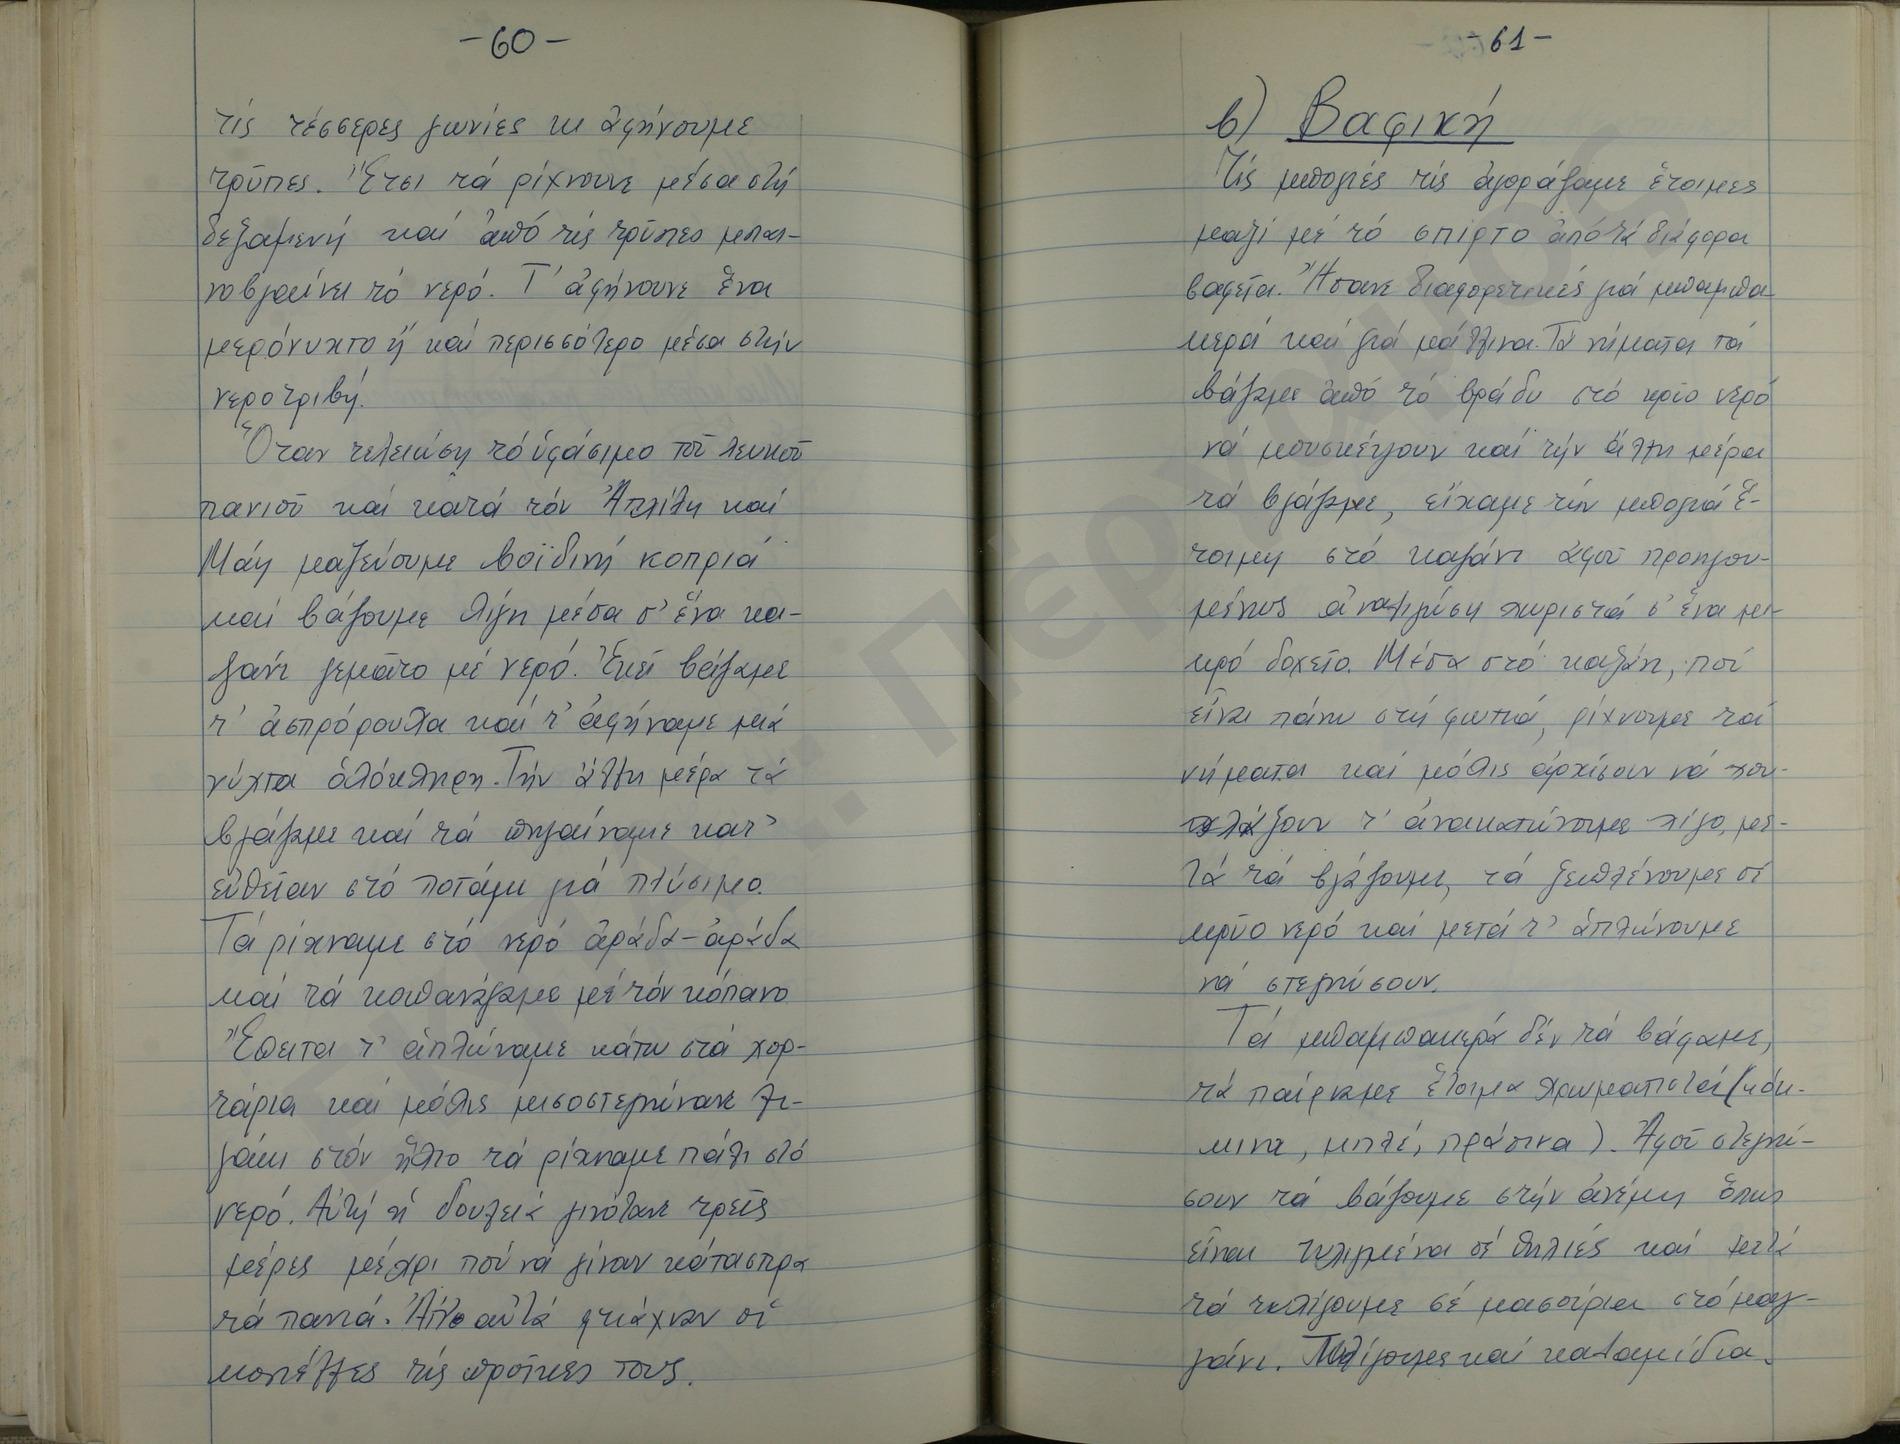 -60-
τίς τέσσερες γωνίες κι ἀφήνουμε
τρῦπες. Ἔτσι τά ρίχνουνε μέσα στή
δεξαμενή καί ἀπό τίς τρῦπες μπαι-
νοβγαίνει τό νερό. Τ' ἀφήνουνε ἕνα
μερόνυχτο ἤ καί περισσότερο μέσα στήν
νεροτριβή.
Ὅταν τελειώση τό ὑφάσιμο τοῦ λευκοῦ
πανιοῦ καί κατά τόν Ἀπρίλη καί
Μάη μαζεύουμε βοϊδινή κοπριά
καί βάζουμε λίγη μέσα σ' ἕνα κα-
ζάνι γεμᾶτο μέ νερό. Ἐκεῖ βάζαμε
τ' ἀσπρόρουχα καί τ' ἀφήναμε μιά
νύχτα ὁλόκληρη. Τήν ἄλλη μέρα τά
βγάζαμε καί τά πηγαίναμε κατ'
εὐθεῖαν στό ποτάμι γιά πλύσιμο.
Τά ρίχναμε στό νερό ἀράδα-ἀράδα
καί τά κοπανάγαμε μέ τόν κόπανο
Ἔπειτα τ' ἁπλώναμε κάτω στά χορ-
τάρια καί μόλις μισοστεγνώνανε λι-
γάκι στόν ἥλιο τά ρίχναμε πάλι στό
νερό. Αὐτή ἡ δουλειά γινότανε τρεῖς
μέρες μέχρι πού νά γίναν κάτασπρα
τά πανιά. Ἀπό αὐτά φτιάχναν οἱ
κοπέλλες τίς προῖκες τους.
-61-
β) Βαφική
Τίς μπογιές τίς ἀγοράζαμε ἕτοιμες
μαζί μέ τό σπίρτο ἀπό τά διάφορα
βαφεῖα. Ἤσανε διαφορετικές γιά μπαμπα-
κερά καί γιά μάλλινα. Τά νήματα τά
βάζαμε ἀπό τό βράδυ στό κρῖο νερό
νά μουσκέψουν καί τήν ἄλλη μέρα
τά βγάζαμε, εἴχαμε τήν μπογιά ἕ-
τοιμη στό καζάνι ἀφοῦ προηγου-
μένως χωριστά σ' ἕνα μι-
κρό δοχεῖο. Μέσα στό καζάνι, πού
εἶναι πάνω στή φωτιά, ρίχνουμε τά
νήματα καί μόλις ἀρχίσουν νά χου-
χλάζουν τ' ἀνακατώνουμε λίγο, με-
τά τά βγάζουμε, τά ξεπλένουμε σέ
κρῦο νερό καί μετά τ' ἁπλώνουμε
νά στεγνώσουν.
Τά μπαμπακερά δέν τά βάφαμε,
τά παίρναμε ἕτοιμα χρωματιστά (κόκ-
κινα, μπλέ, πράσινα). Ἀφοῦ στεγνώ-
σουν τά βάζουμε στήν ἀνέμη ὅπως
εἶναι τυλιγμένα σέ θηλιές καί μετά
τά τυλίγουμε σέ μασούρια στό μαγ-
γάνι. Τυλίγουμε καί καλαμίδια.
ΠΕΡΓΑΜΟΣ